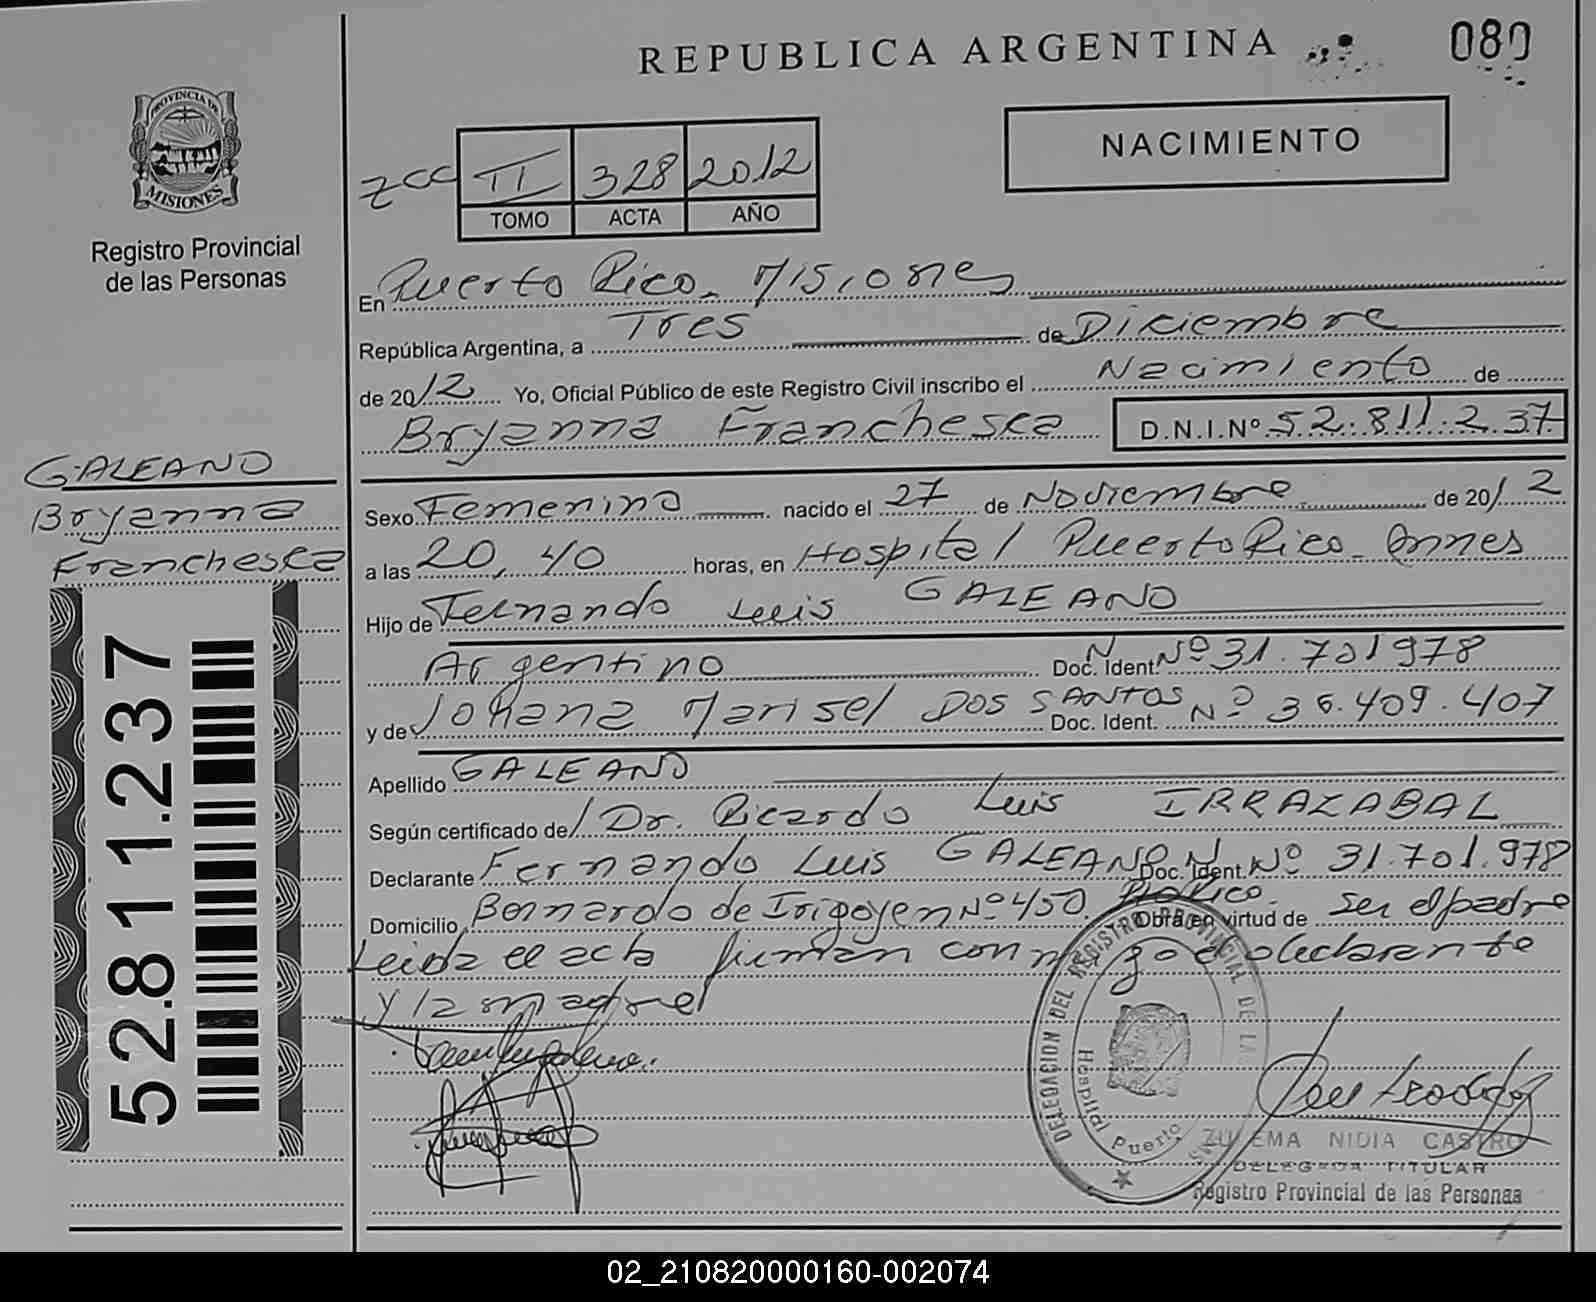 REPUBLICA ARGENTINA
080
NACIMIENTO
PROVINCIA DE
MISIONES
Registro Provincial
de las Personas
II 328 2012
TOMO ACTA AÑO
En Puerto Rico - Misiones
República Argentina, a Tres de Diciembre
de 2012 Yo, Oficial Público de este Registro Civil inscribo el Nacimiento de
Bryanna Franchesca D.N.I.Nº 52.811.237
GALEANO
Bryanna
Franchesca
52.811.237
Sexo Femenino nacido el 27 de Noviembre de 2012
a las 20,40 horas, en Hospital Puerto Rico - Mnes
Hijo de Fernando Luis GALEANO
Argentino Doc. Ident. Nº 31.701978
y de Johana Marisel DOS SANTOS Doc. Ident. Nº 36.409.407
Apellido GALEANO
Según certificado del Dr. Ricardo Luis IRRAZABAL
Declarante Fernando Luis GALEANO Doc. Ident. Nº 31.701.978
Domicilio Bernardo de Irigoyen Nº 450. Pto Rico. Obra en virtud de ser el padre
Leida el acta firman conmigo el declarante
y la madre
DELEGACION DEL REGISTRO PROVINCIAL DE LAS
Hospital Puerto
ZULEMA NIDIA CASTRO
DELEGADA TITULAR
Registro Provincial de las Personas
02_210820000160-002074